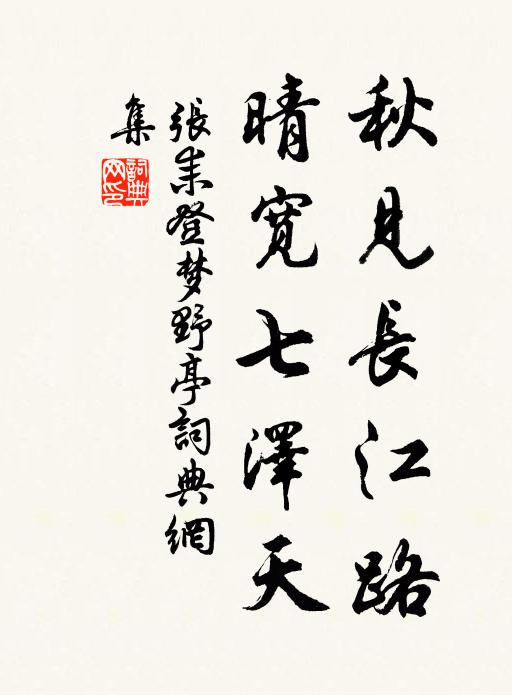 秋見長江路
晴寬七澤天
張耒登梦野亭詞典網
集
詞典网印